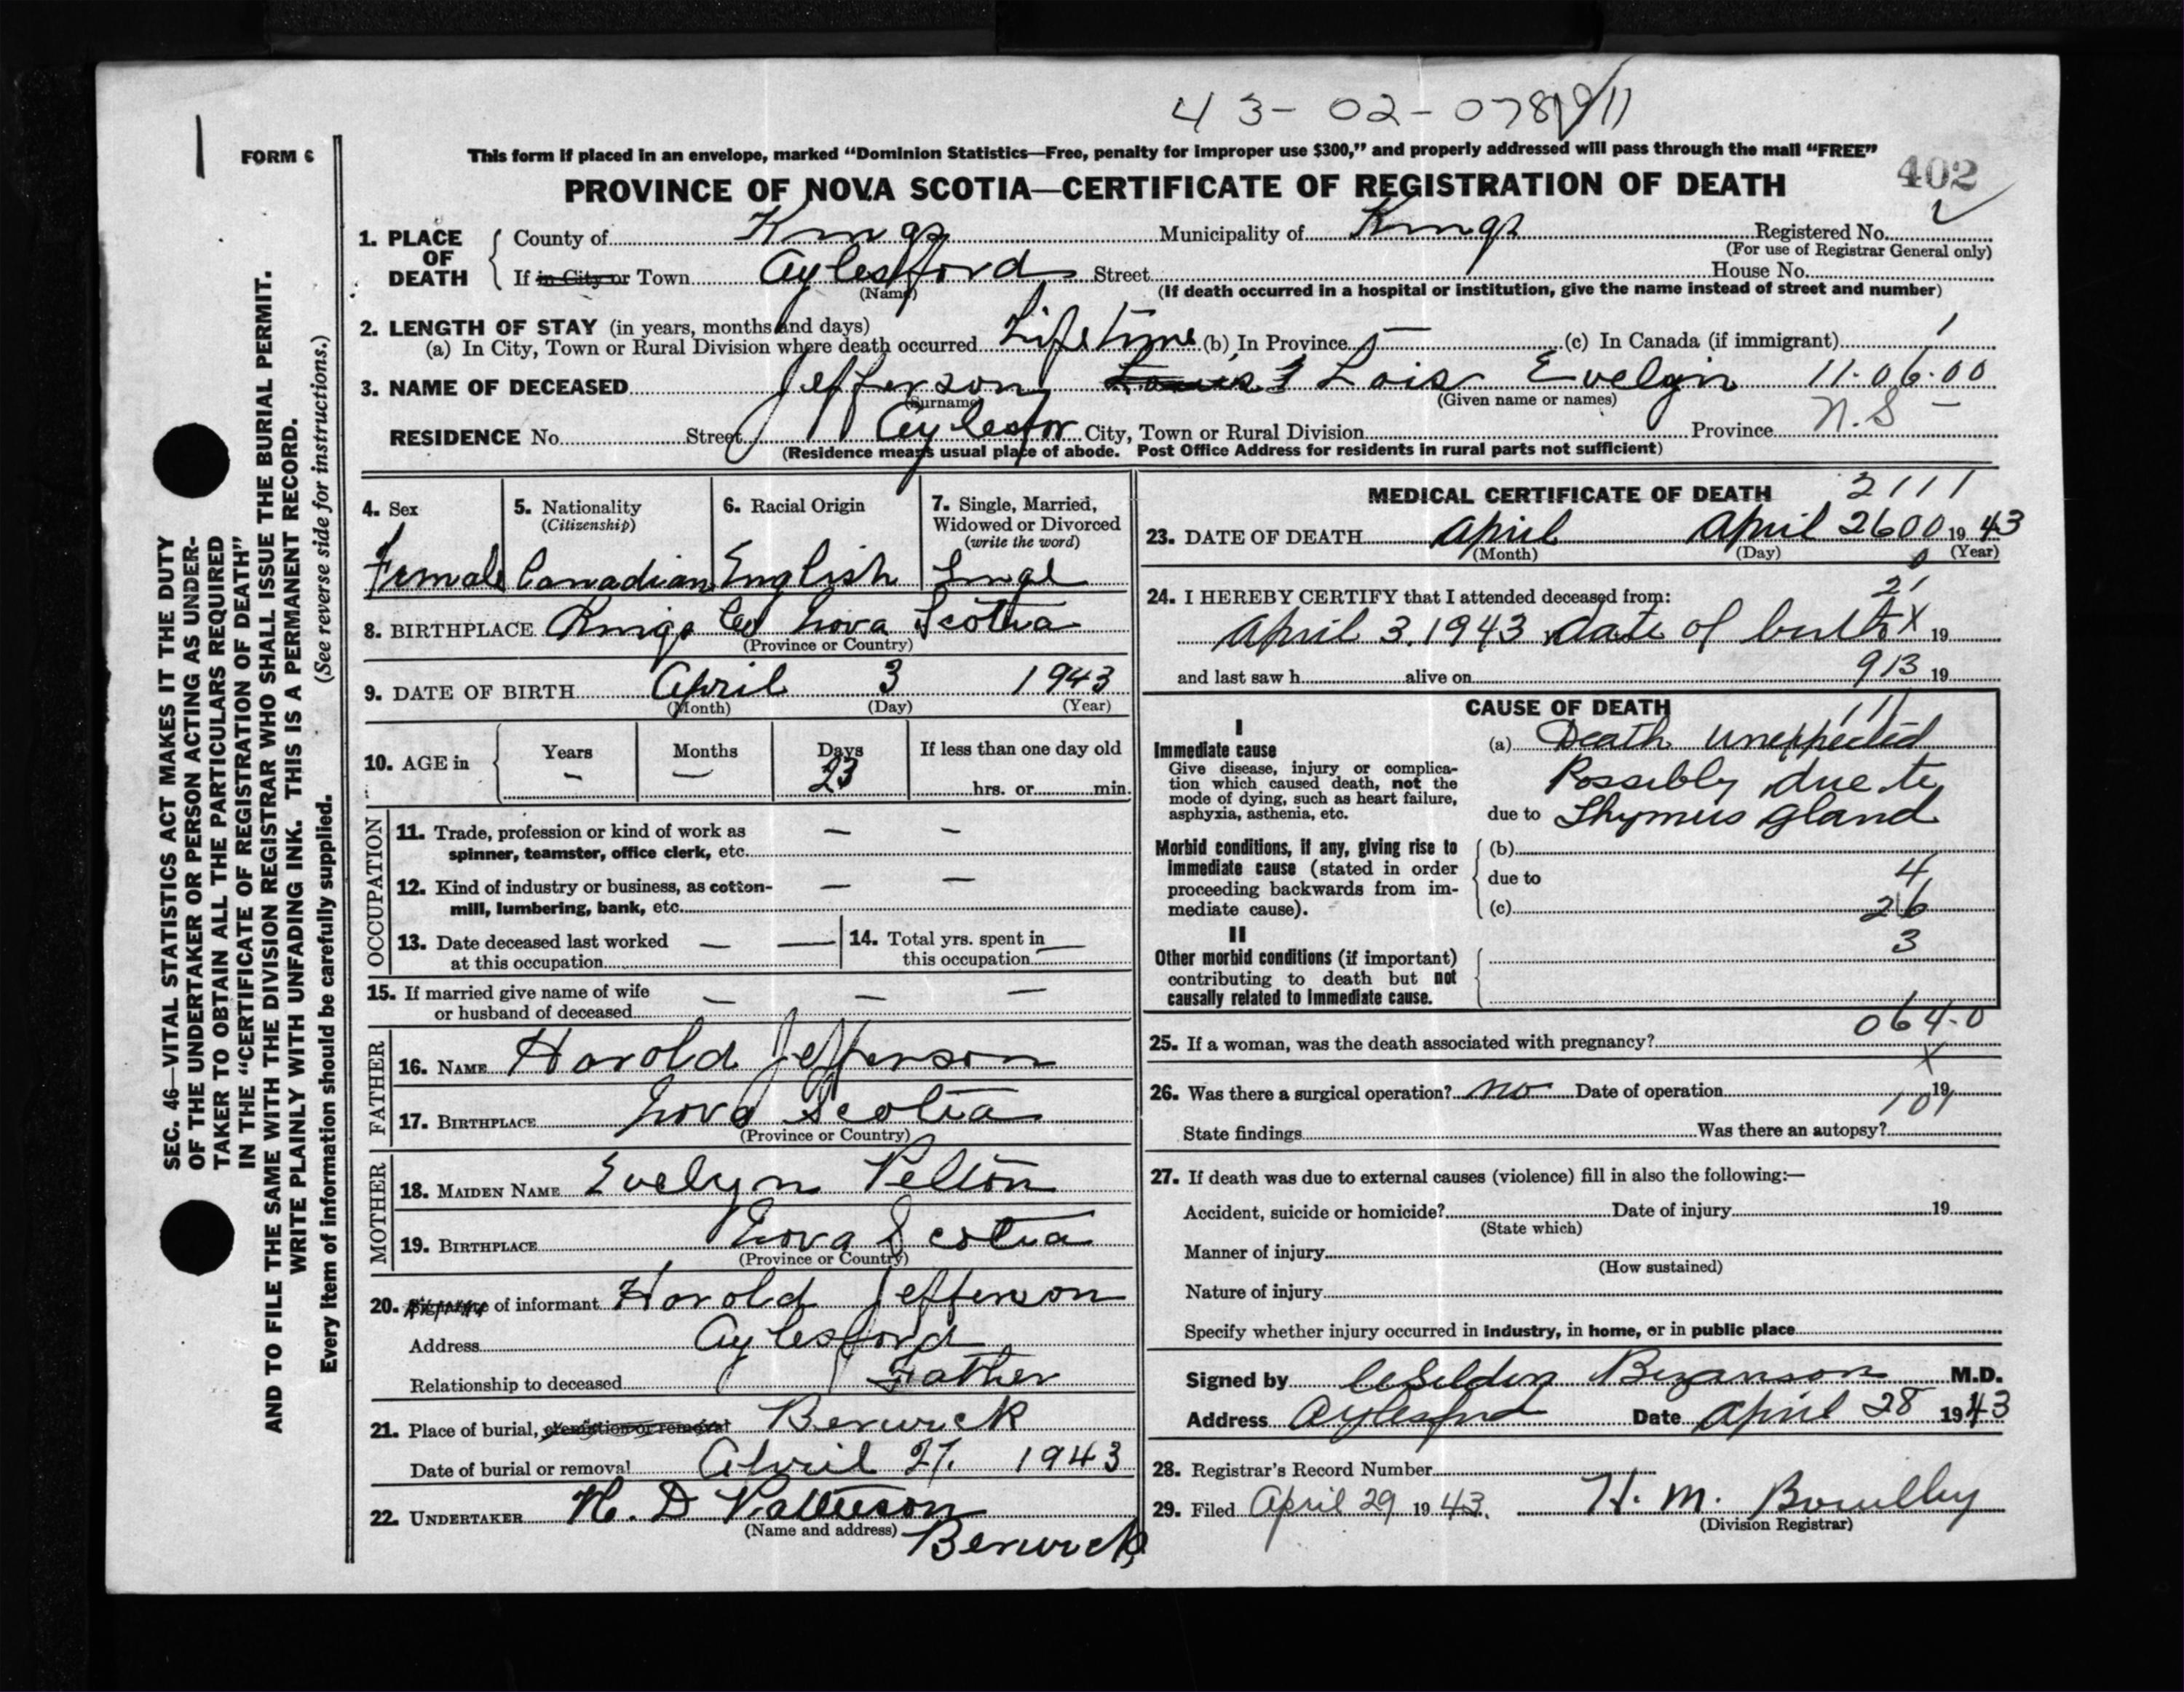 43-02-078911
FORM 6
This form if placed in an envelope, marked “Dominion Statistics—Free, penalty for improper use $300,” and properly addressed will pass through the mail “FREE”
402
PROVINCE OF NOVA SCOTIA—CERTIFICATE OF REGISTRATION OF DEATH
1. PLACE OF DEATH County of Kings Municipality of Kings Registered No.
(For use of Registrar General only)
If in City or Town Aylesford Street House No.
(Name) (If death occurred in a hospital or institution, give the name instead of street and number)
2. LENGTH OF STAY (in years, months and days)
(a) In City, Town or Rural Division where death occurred Lifetime (b) In Province — (c) In Canada (if immigrant) 1
3. NAME OF DECEASED Jefferson Lois Evelyn 11-06-00
(Surname) (Given name or names)
RESIDENCE No. Street Aylesfor City, Town or Rural Division Province N.S —
(Residence means usual place of abode. Post Office Address for residents in rural parts not sufficient)
4. Sex
Female
5. Nationality
(Citizenship)
Canadian
6. Racial Origin
English
7. Single, Married,
Widowed or Divorced
(write the word)
Singl
8. BIRTHPLACE Kings Co Nova Scotia
(Province or Country)
9. DATE OF BIRTH April 3 1943
(Month) (Day) (Year)
10. AGE in Years Months Days If less than one day old
— — 23 hrs. or min.
OCCUPATION
11. Trade, profession or kind of work as — —
spinner, teamster, office clerk, etc.
12. Kind of industry or business, as cotton- — —
mill, lumbering, bank, etc.
13. Date deceased last worked — —
at this occupation
14. Total yrs. spent in —
this occupation
15. If married give name of wife — — —
or husband of deceased
FATHER
16. NAME Harold Jefferson
17. BIRTHPLACE Nova Scotia
(Province or Country)
MOTHER
18. MAIDEN NAME Evelyn Pelton
19. BIRTHPLACE Nova Scotia
(Province or Country)
20. Signature of informant Harold Jefferson
Address Aylesford
Relationship to deceased Father
21. Place of burial, cremation or removal Berwick
Date of burial or removal April 27. 1943
22. UNDERTAKER N. D Patterson
(Name and address) Berwick
MEDICAL CERTIFICATE OF DEATH 2111
23. DATE OF DEATH April April 2600 1943
(Month) (Day) (Year)
24. I HEREBY CERTIFY that I attended deceased from: 21
April 3, 1943 date of birth X 19
and last saw h alive on 913 19
CAUSE OF DEATH 111
I
Immediate cause
Give disease, injury or complica-
tion which caused death, not the
mode of dying, such as heart failure,
asphyxia, asthenia, etc.
(a) Death unexpected
Possibly due to
due to Thymus gland
Morbid conditions, if any, giving rise to
immediate cause (stated in order
proceeding backwards from im-
mediate cause).
(b)
due to 4
(c) 26
II 3
Other morbid conditions (if important)
contributing to death but not
causally related to immediate cause.
064-0
25. If a woman, was the death associated with pregnancy?
X
26. Was there a surgical operation? no Date of operation 19
101
State findings Was there an autopsy?
27. If death was due to external causes (violence) fill in also the following:—
Accident, suicide or homicide? Date of injury 19
(State which)
Manner of injury
(How sustained)
Nature of injury
Specify whether injury occurred in industry, in home, or in public place
Signed by Bezanson M.D.
Address Aylesford Date April 28 1943
28. Registrar's Record Number
29. Filed April 29 1943. H. M.
(Division Registrar)
SEC. 46—VITAL STATISTICS ACT MAKES IT THE DUTY
OF THE UNDERTAKER OR PERSON ACTING AS UNDER-
TAKER TO OBTAIN ALL THE PARTICULARS REQUIRED
IN THE “CERTIFICATE OF REGISTRATION OF DEATH”
AND TO FILE THE SAME WITH THE DIVISION REGISTRAR WHO SHALL ISSUE THE BURIAL PERMIT.
WRITE PLAINLY WITH UNFADING INK. THIS IS A PERMANENT RECORD.
Every item of information should be carefully supplied. (See reverse side for instructions.)